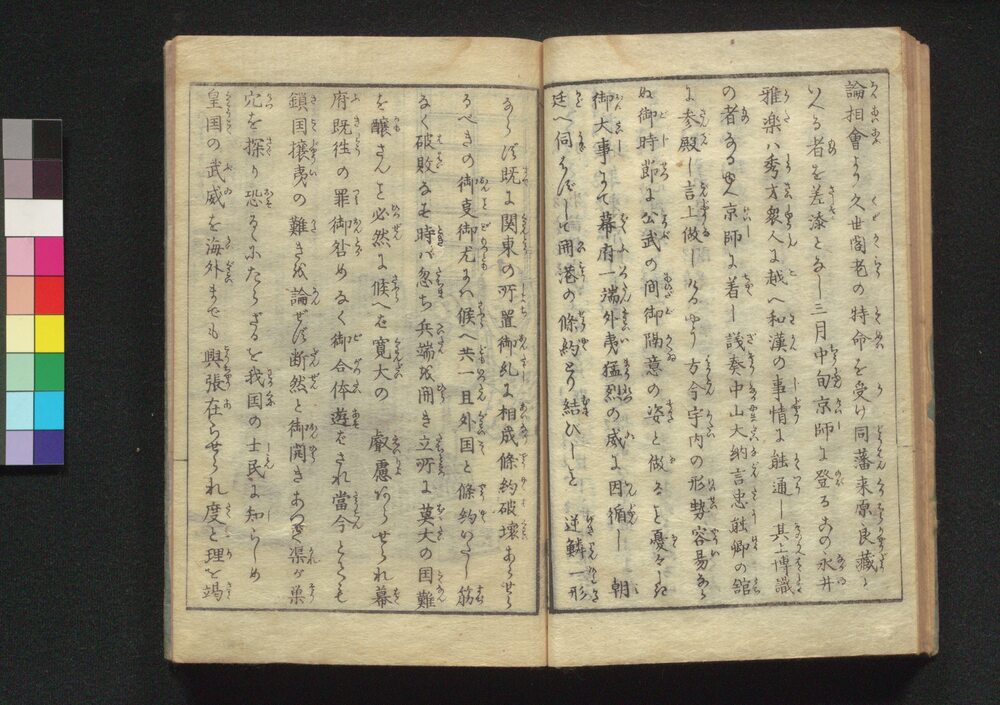 論相會より久世閣老の特命を受け同藩来原良藏と
いへる者を差添となし三月中旬京師に登るこの永井
雅楽ハ秀才衆人に越へ和漢の事情に能通し其上博識
の者なるゆへ京師に着し議奏中山大納言忠能卿の館
に参殿し言上做しけるやう方今宇内の形勢容易なら
ぬ御時節に公武の間御隔意の姿と做ること憂々しき
御大事にて幕府一端外夷猛烈の威に因循し 朝
廷へ伺はずして開港の條約とり結ひしこと 逆鱗一形
ならず既に関東の所置御糺に相成條約破壊あらせら
るべきの御事御尤にハ候へ共一旦外国と條約いたし筋
なく破敗なさバ時バ忽ち兵端を開き立所に莫大の国難
を醸さんこと必然に候へば寛大の 叡慮あらせられ幕
府既徃の罪御咎めなく御合体遊ばされ當今とても
鎖国攘夷の難きを論ぜず断然と御開きあつて渠が巣
穴を探り恐るゝにたらざるを我国の士民に知らしめ
皇国の武威を海外までも興張在らせられ度と理を竭